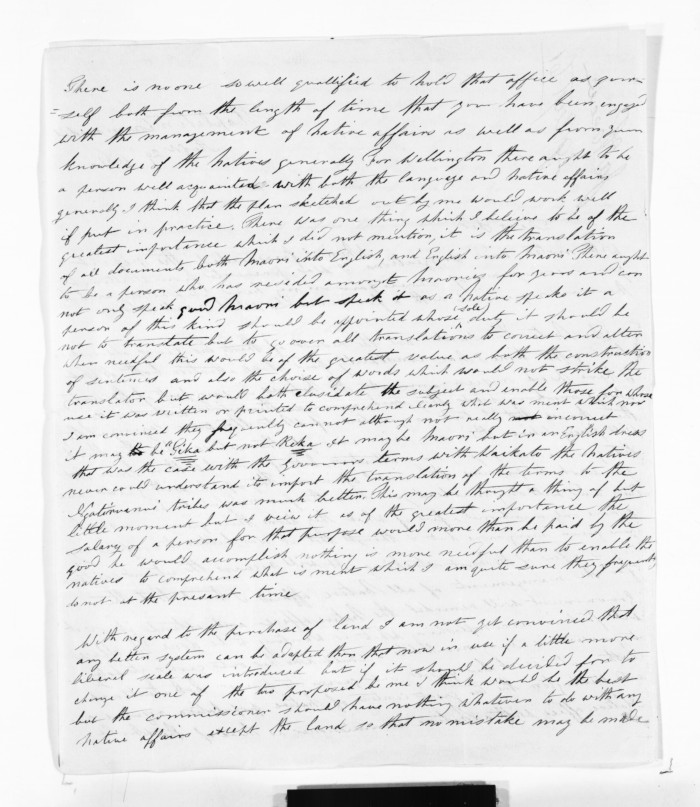 There is no one so well quallified to hold that office as your
= self both from the length of time that you have been engaged
with the management of native affairs as well as from your
knowledge of the natives generally For Wellington there aught to be
a person well acquainted with both the language and native affairs
generally I think that the plan sketched out by me would work well
if put in practice. There was one thing which I believe to be of the
greatest importance which I did not mention, it is the translation
of all documents both Maori into English, and English into Maori There aught
to be a person who has resided amongst Maories for years and can
not only speak good Maori but speek it as a native speeks it a
person of this kind should be appointed whose (sole) duty it should be
not to translate but to go over all translations to correct and alter
when needful this would be of the greatest value as both the construction
of sentences and also the choise of words which would not strike the
translator but would both elusidate the subject and enable those for whose
use it was written or printed to comprehend clearly what was ment which now
I am convinced they frequently cannot although not really incorrect
it may be "Tika but not Rika it may be Maori but in an English dress
that was the case with the Governors terms with Waikato the natives
never could understand its import the translation of the terms to the
Ngatiruanui tribes was much better. This may be thought a thing of but
little moment but I veiw it as of the greatest importance the
salary of a person for that purpose would more than be paid by the
good he would accomplish nothing is more needful than to enable the
natives to comprehend what is ment which I am quite sure they frequently
do not at the present time
With regard to the purchase of land I am not yet convinced that
any better system can be adapted than that now in use if a little more
liberal scale was introduced but if it should be decided for to
change it one of the two proposed by me I think would be the best
but the commissioner should have nothing whatever to do with any
native affairs except the land so that no mistake may be made